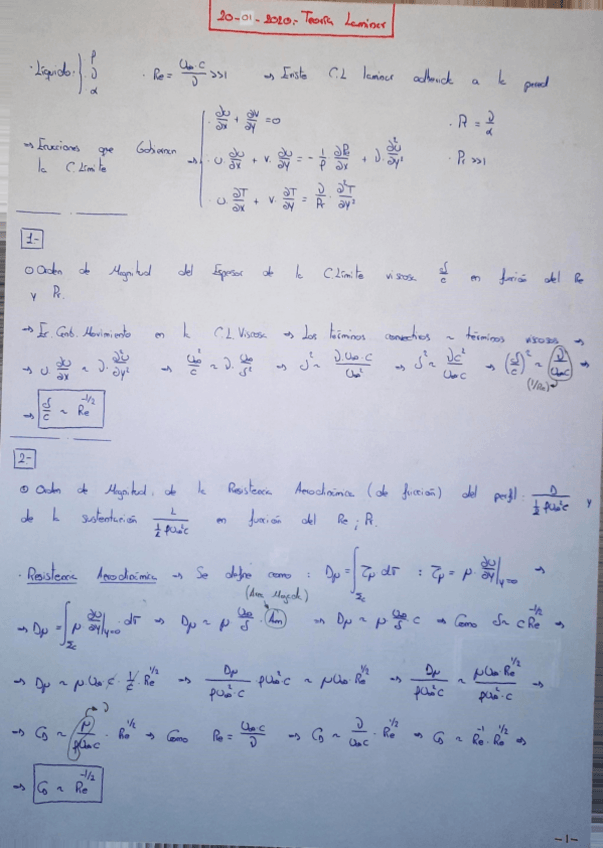 20-01-2020.- Teoría Laminar
· Líquido: } ρ ν α · Re = U∞·c/ν >>1 → Existe C.L laminar adherida a la pared
→ Ecuaciones que Gobiernan la C.Límite →
· ∂u/∂x + ∂v/∂y = 0 · Pr = ν/α
· u·∂u/∂x + v·∂u/∂y = -1/ρ ∂Pe/∂x + ν·∂²u/∂y² · Pr >>1
· u·∂T/∂x + v·∂T/∂y = ν/Pr·∂²T/∂y²
1-
⊙ Orden de Magnitud del Espesor de la C.Límite viscosa δ/c en función del Re
y Pr.
→ Ec. Cont. Movimiento en la C.L Viscosa → Los términos convectivos ~ términos viscosos →
→ u·∂u/∂x ~ ν·∂²u/∂y² → U∞²/c ~ ν·U∞/δ² → δ² ~ ν·U∞·c/U∞² → δ² ~ νc²/U∞c → (δ/c)² ~ ν/U∞c →
(1/Re)
→ δ/c ~ Re^-1/2
2-
⊙ Orden de Magnitud de la Resistencia Aerodinámica (de fricción) del perfil: D/½ρU∞²c y
de la sustentación L/½ρU∞²c en función del Re; Pr.
· Resistencia Aerodinámica → Se define como: Dμ = ∫Σc τμ dσ : τμ = μ·∂u/∂y|y=0 →
→ Dμ = ∫Σc μ ∂u/∂y|y=0·dσ → Dμ ~ μ U∞/δ · Am → Dμ ~ μ U∞/δ c → Como δ ~ c Re^-1/2 →
→ Dμ ~ μ U∞·c·1/c·Re^1/2 → Dμ/ρU∞²c ρU∞²c ~ μU∞ Re^1/2 → Dμ/ρU∞²c ~ μU∞·Re^1/2/ρU∞²·c →
→ CD ~ μ/ρU∞c · Re^1/2 → Como Re = U∞·c/ν → CD ~ ν/U∞c · Re^1/2 → CD ~ Re^-1·Re^1/2 →
→ CD ~ Re^-1/2
-1-